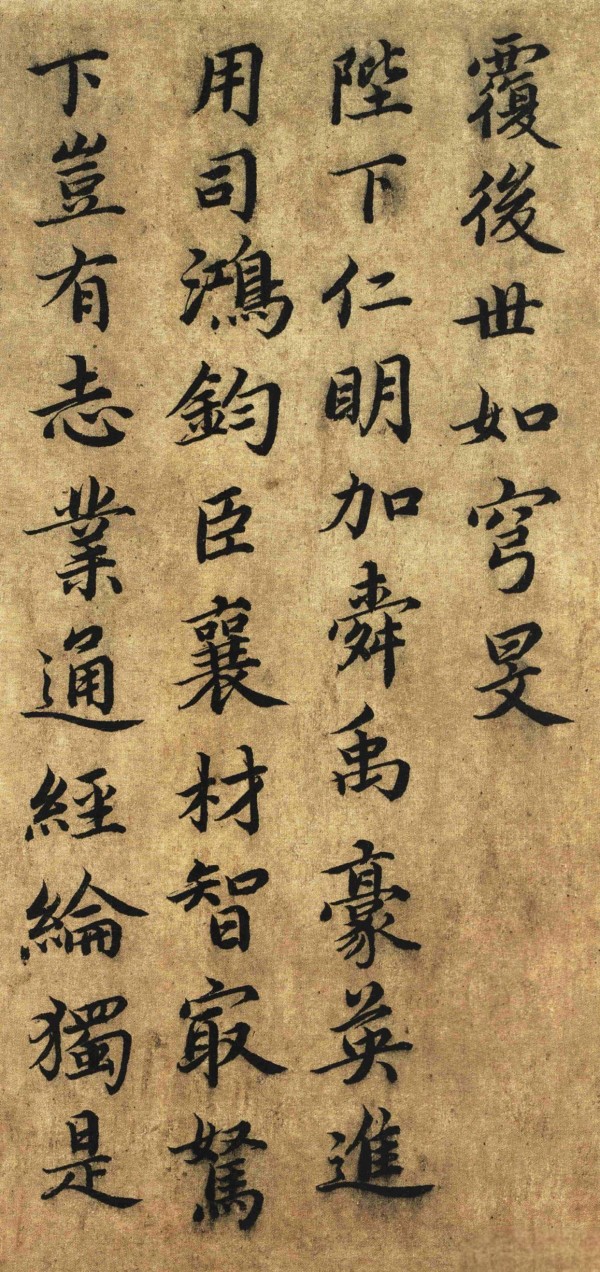 覆後世如穹旻
陛下仁明加舜禹豪英進
用司鴻鈞臣襄材智㝡駑
下豈有志業通經綸獨是